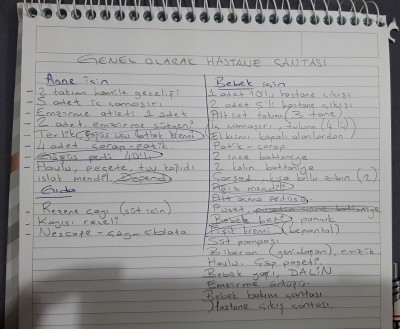 GENEL OLARAK HASTANE ÇANTASI
Anne için
- 2 takım hamile geceliği
- 5 adet iç çamaşırı
- Emzirme atleti 1 adet
- 2 adet emzirme sütyeni
- Terlik, Göğüs ucu çatlak kremi
4 adet çorap - patik
- Göğüs pedi 40'lı
- Havlu, peçete, tuv. kağıdı
ıslak mendil,
Gıda
- Rezene çayı (süt için)
- Kayısı reçeli
- Nescafe - çay - çikolata
Bebek için
1 adet 10'lu hastane çıkışı
2 adet 5'li hastane çıkışı
Pijama takım (3 tane)
iç çamaşırı, tulum (4 lü)
El kısmı kapalı olanlardan
Patik - çorap
2 ince battaniye
2 kalın battaniye
zıbın (2)
mendil
Alt açma örtüsü
Puset,
Bebek bezi, pamuk
Pişik kremi (bepanthol)
Süt pompası
Biberon (yenidoğan), emzik
Havlu, çöp poşeti
Bebek yağı, DALİN
Emzirme önlüğü
Bebek bakım çantası
Hastane çıkış çantası